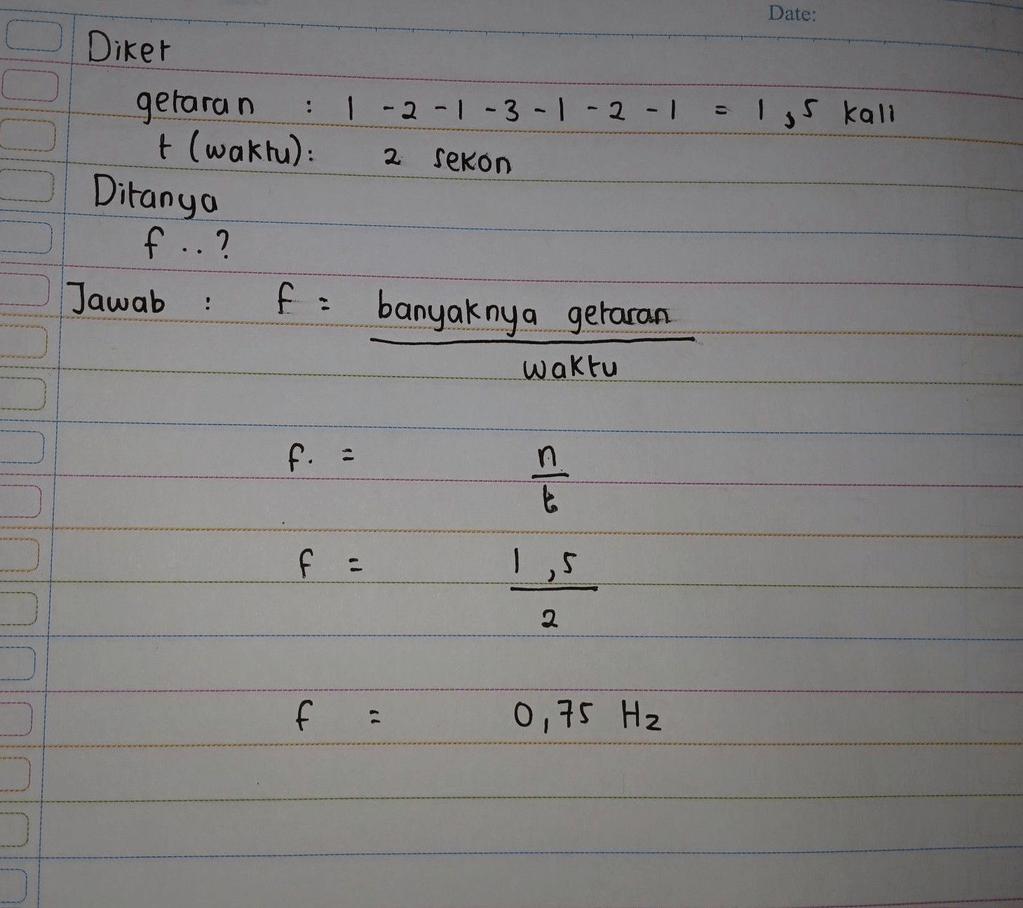 Date:
Diket
getaran : 1 - 2 - 1 - 3 - 1 - 2 - 1 = 1,5 kali
t (waktu): 2 sekon
Ditanya
f ..?
Jawab : f = banyaknya getaran
waktu
f. = n
t
f = 1,5
2
f = 0,75 Hz